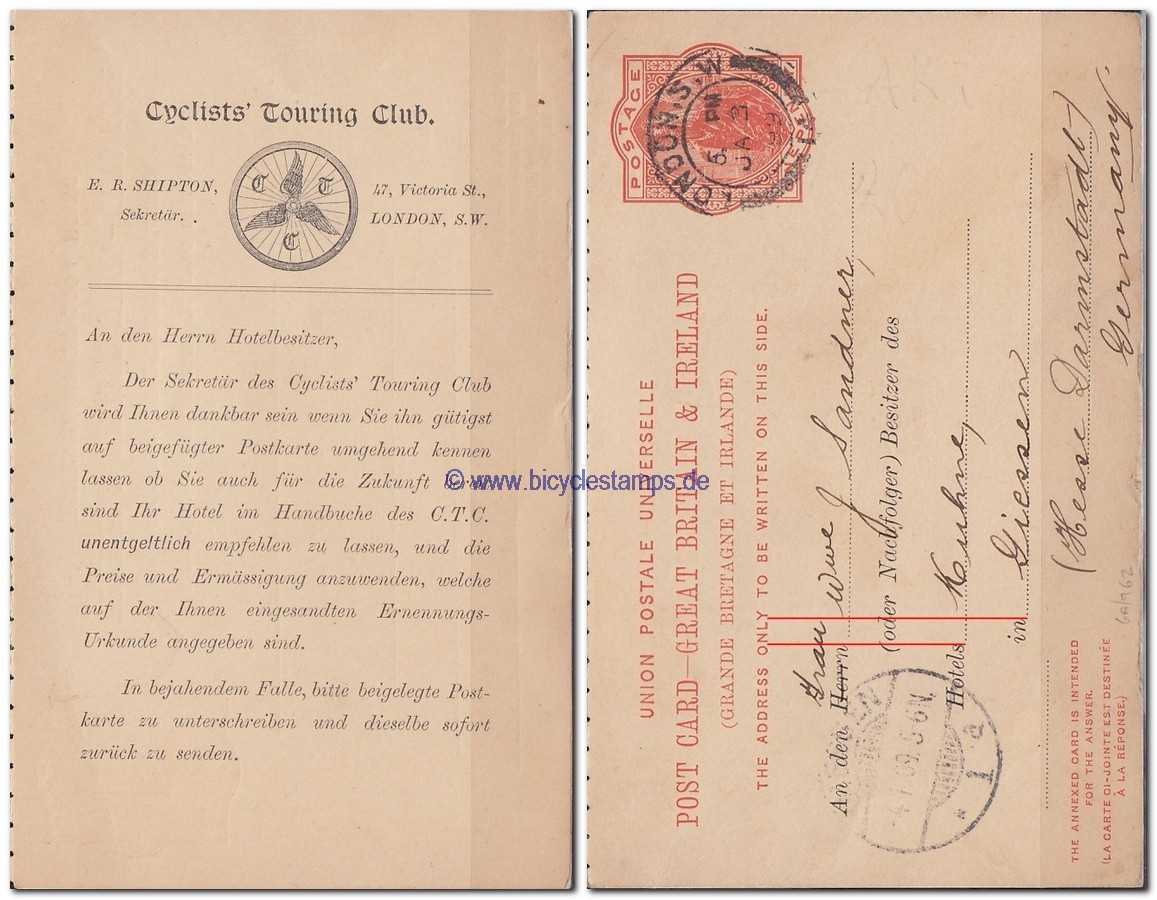 Cyclists' Touring Club.
E. R. SHIPTON,
Sekretär. .
C T C
47, Victoria St.,
LONDON, S.W.
An den Herrn Hotelbesitzer,
Der Sekretär des Cyclists' Touring Club
wird Ihnen dankbar sein wenn Sie ihn gütigst
auf beigefügter Postkarte umgehend kennen
lassen ob Sie auch für die Zukunft bereit
sind Ihr Hotel im Handbuche des C.T.C.
unentgeltlich empfehlen zu lassen, und die
Preise und Ermässigung anzuwenden, welche
auf der Ihnen eingesandten Ernennungs-
Urkunde angegeben sind.
In bejahendem Falle, bitte beigelegte Post-
karte zu unterschreiben und dieselbe sofort
zurück zu senden.
© www.bicyclestamps.de
UNION POSTALE UNIVERSELLE
POST CARD—GREAT BRITAIN & IRELAND
(GRANDE BRETAGNE ET IRLANDE)
THE ADDRESS ONLY TO BE WRITTEN ON THIS SIDE.
POSTAGE
ONE PENNY
LONDON, S.W
5 PM
JA 3
09
Frau Wwe J Sandner,
An den Herrn
(oder Nachfolger) Besitzer des
Hotels Kuhne,
in Giessen
(Hesse Darmstadt)
Germany.
4.1.09. 5-6N.
* 1 a
THE ANNEXED CARD IS INTENDED
FOR THE ANSWER.
(LA CARTE CI-JOINTE EST DESTINÉE
À LA RÉPONSE.)